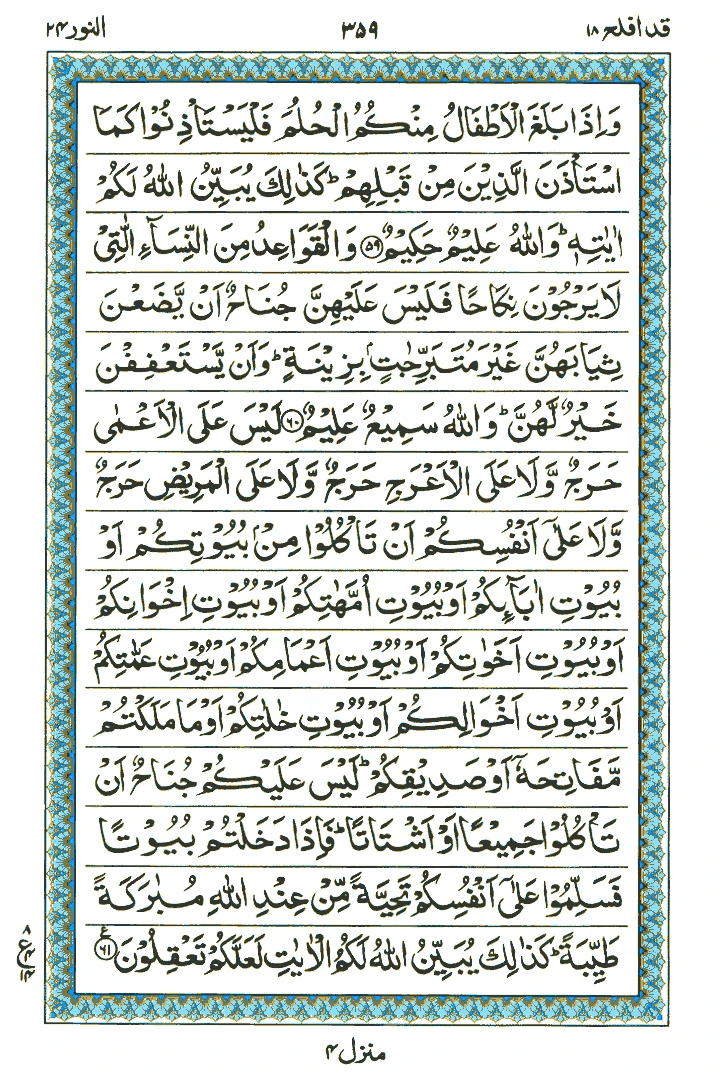 قد افلح ۱۸ ۳۵۹ النور ۲۴
وَاِذَا بَلَغَ الْاَطْفَالُ مِنْكُمُ الْحُلُمَ فَلْيَسْتَاْذِنُوْا كَمَا
اسْتَاْذَنَ الَّذِيْنَ مِنْ قَبْلِهِمْ ؕ كَذٰلِكَ يُبَيِّنُ اللّٰهُ لَكُمْ
اٰيٰتِهٖ ؕ وَاللّٰهُ عَلِيْمٌ حَكِيْمٌ ۝۵۹ وَالْقَوَاعِدُ مِنَ النِّسَآءِ الّٰتِيْ
لَا يَرْجُوْنَ نِكَاحًا فَلَيْسَ عَلَيْهِنَّ جُنَاحٌ اَنْ يَّضَعْنَ
ثِيَابَهُنَّ غَيْرَ مُتَبَرِّجٰتٍۭ بِزِيْنَةٍ ؕ وَاَنْ يَّسْتَعْفِفْنَ
خَيْرٌ لَّهُنَّ ؕ وَاللّٰهُ سَمِيْعٌ عَلِيْمٌ ۝۶۰ لَيْسَ عَلَى الْاَعْمٰى
حَرَجٌ وَّلَا عَلَى الْاَعْرَجِ حَرَجٌ وَّلَا عَلَى الْمَرِيْضِ حَرَجٌ
وَّلَا عَلٰٓى اَنْفُسِكُمْ اَنْ تَاْكُلُوْا مِنْۢ بُيُوْتِكُمْ اَوْ
بُيُوْتِ اٰبَآئِكُمْ اَوْ بُيُوْتِ اُمَّهٰتِكُمْ اَوْ بُيُوْتِ اِخْوَانِكُمْ
اَوْ بُيُوْتِ اَخَوٰتِكُمْ اَوْ بُيُوْتِ اَعْمَامِكُمْ اَوْ بُيُوْتِ عَمّٰتِكُمْ
اَوْ بُيُوْتِ اَخْوَالِكُمْ اَوْ بُيُوْتِ خٰلٰتِكُمْ اَوْ مَا مَلَكْتُمْ
مَّفَاتِحَهٗٓ اَوْ صَدِيْقِكُمْ ؕ لَيْسَ عَلَيْكُمْ جُنَاحٌ اَنْ
تَاْكُلُوْا جَمِيْعًا اَوْ اَشْتَاتًا ؕ فَاِذَا دَخَلْتُمْ بُيُوْتًا
فَسَلِّمُوْا عَلٰٓى اَنْفُسِكُمْ تَحِيَّةً مِّنْ عِنْدِ اللّٰهِ مُبٰرَكَةً
طَيِّبَةً ؕ كَذٰلِكَ يُبَيِّنُ اللّٰهُ لَكُمُ الْاٰيٰتِ لَعَلَّكُمْ تَعْقِلُوْنَ ۝۶۱
۸
ع ۴
۱۴
منزل ۴